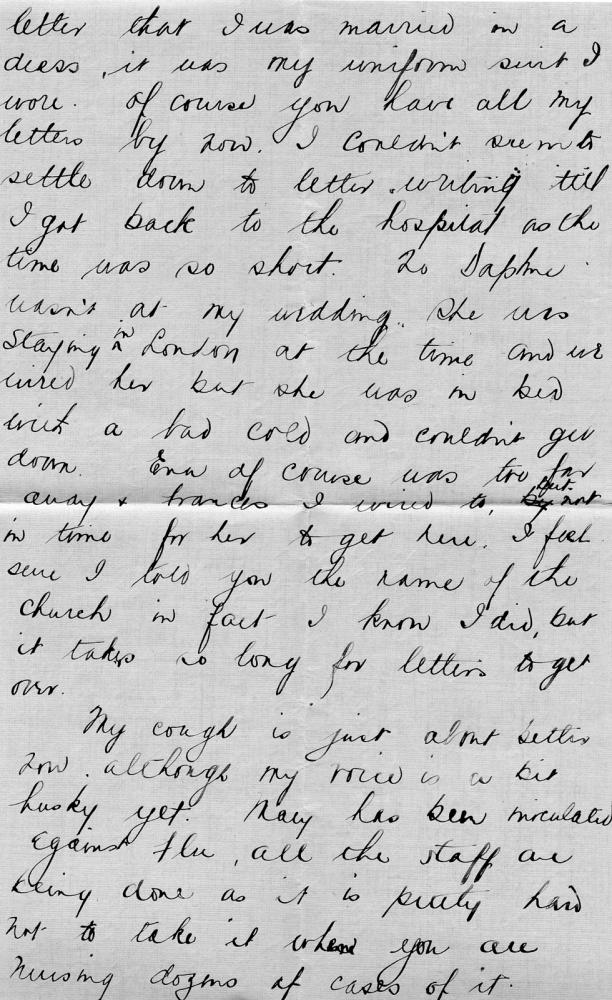 letter that I was married in a
dress, it was my uniform suit I
wore. Of course you have all my
letters by now. I couldn't seem to
settle down to letter writing till
I got back to the hospital as the
time was so short. No Daphne
wasn't at my wedding. She was
staying in London at the time and we
wired her but she was in bed
with a bad cold and couldn't get
down. Ena of course was too far
away & Frances I wired to, but not
in time for her to get here. I feel
sure I told you the name of the
church in fact I know I did, but
it takes so long for letters to get
over.
My cough is just about better
now. although my voice is a bit
husky yet. Mary has been inoculated
against flu, all the staff are
being done as it is pretty hard
not to take it when you are
nursing dozens of cases of it.